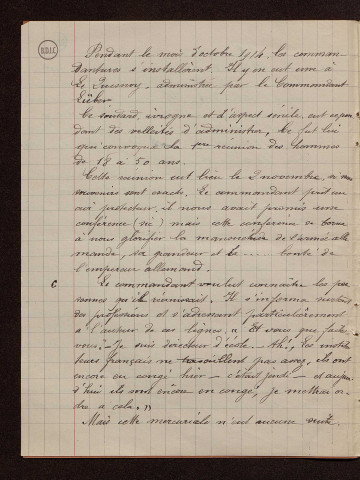 B.D.I.C
Pendant le mois d'octobre 1914, les comman
dantures s'installèrent. Il y en eut une à
Le Quesnoy, administrée par le Commandant
Ce soudard, ivrogne et d'aspect sénile, eut cepen
dant des velléités d'administrer. Ce fut lui
qui convoqua la 1ère réunion des hommes
de 18 à 50 ans.
Cette réunion eut lieu le 2 novembre, si mes
souvenirs sont exacts. Le commandant prit un
air protecteur, il nous avait promis une
conférence (sic) mais cette conférence se borna
à nous glorifier la mansuétude de l'armée alle
mande, sa grandeur et la .... bonté de
l'empereur allemand.
Le commandant voulut connaître les per
sonnes qu'il réunissait. Il s'informa surtout
des professions et s'adressant particulièrement
à l'auteur de ces lignes. « Et vous que faites
vous? - Je suis directeur d'école - Ah!, les institu
teurs français ne travaillent pas assez, ils ont
encore eu congé hier - c'était jeudi - et aujour
d'hui ils sont encore en congé, je mettrai or
dre à cela. »
Mais cette mercuriale n'eut aucune suite.